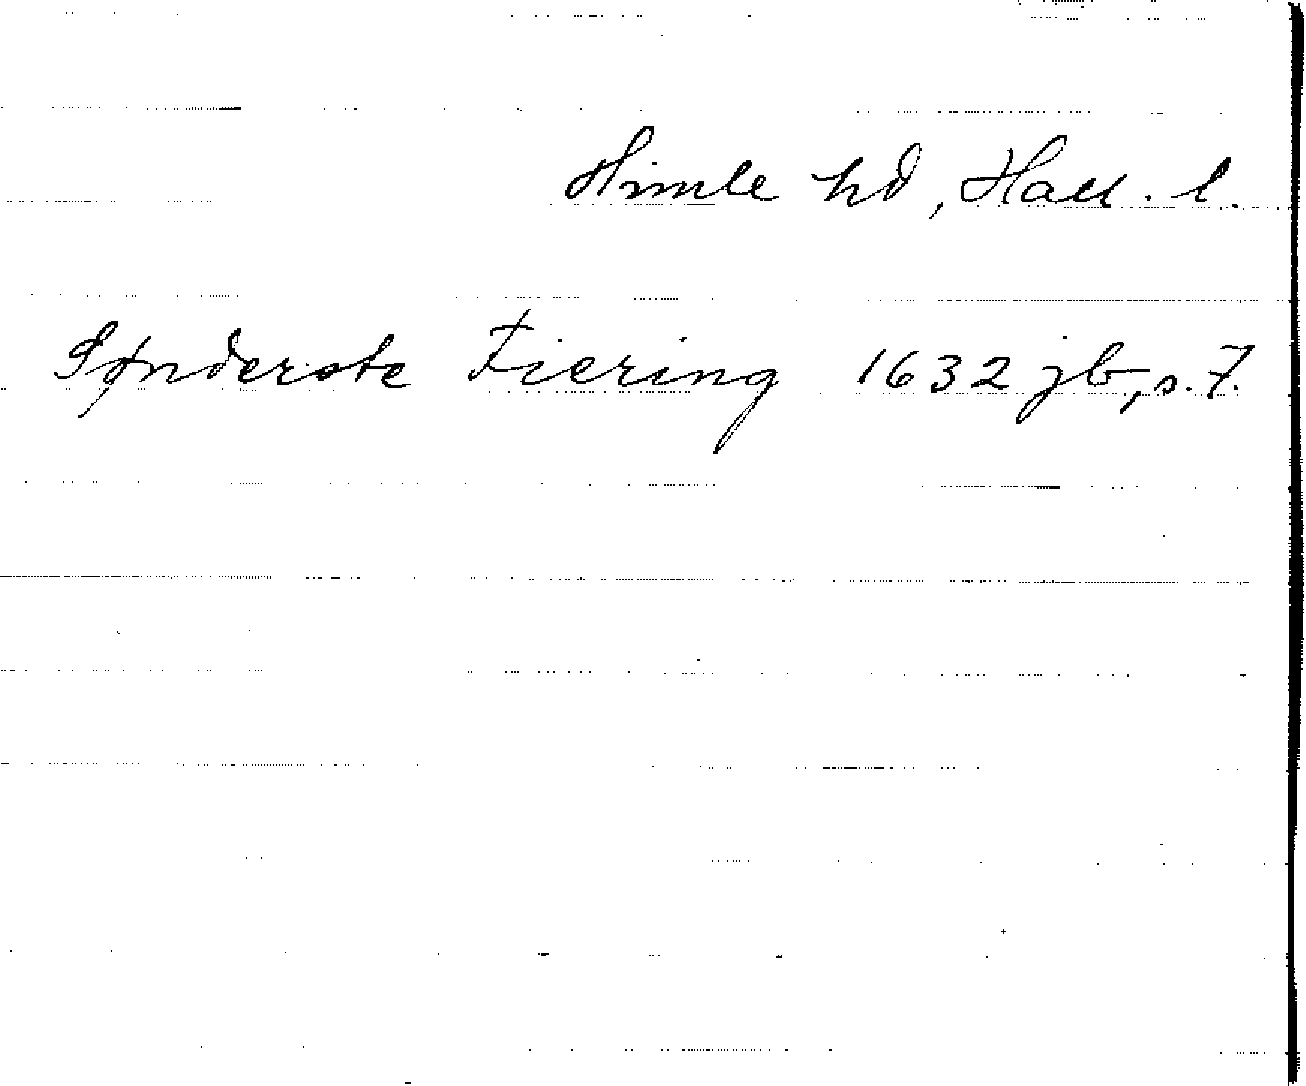 Himle hd, Hall. l.
Sønderste Fiering 1632 jb, s. 7.